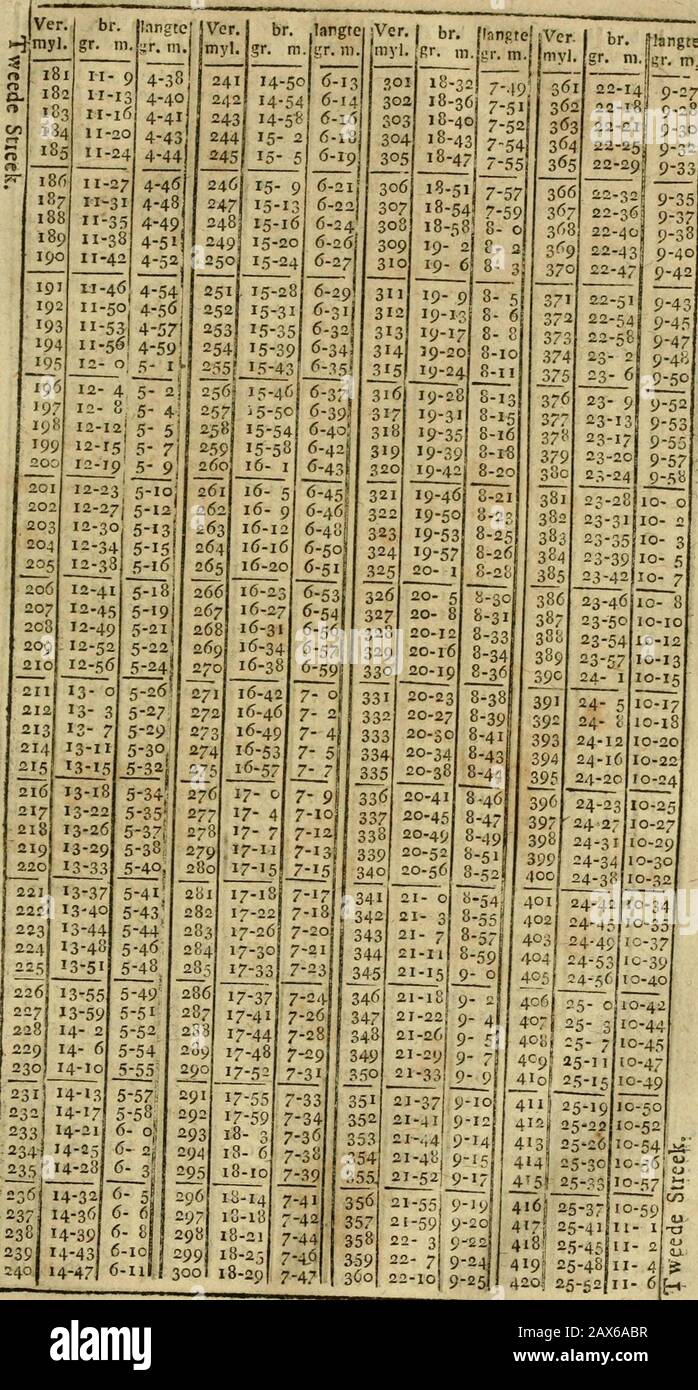 Ver. br. langte Ver. br. langte Ver. br. langte Ver. br. langte
myl. gr. m. gr. m. myl. gr. m. gr. m. myl. gr. m. gr. m. myl. gr. m. gr. m.
Tweede Streek.
181 11- 9 4-38 241 14-50 6-13 301 18-32 7-49 361 22-14 9-27
182 11-13 4-40 242 14-54 6-14 302 18-36 7-51 362 22-18 9-28
183 11-16 4-41 243 14-58 6-16 303 18-40 7-52 363 22-21 9-30
184 11-20 4-43 244 15- 2 6-18 304 18-43 7-54 364 22-25 9-32
185 11-24 4-44 245 15- 5 6-19 305 18-47 7-55 365 22-29 9-33
186 11-27 4-46 246 15- 9 6-21 306 18-51 7-57 366 22-32 9-35
187 11-31 4-48 247 15-13 6-22 307 18-54 7-59 367 22-36 9-37
188 11-35 4-49 248 15-16 6-24 308 18-58 8- 0 368 22-40 9-38
189 11-38 4-51 249 15-20 6-26 309 19- 2 8- 2 369 22-43 9-40
190 11-42 4-52 250 15-24 6-27 310 19- 6 8- 3 370 22-47 9-42
191 11-46 4-54 251 15-28 6-29 311 19- 9 8- 5 371 22-51 9-43
192 11-50 4-56 252 15-31 6-31 312 19-13 8- 6 372 22-54 9-45
193 11-53 4-57 253 15-35 6-32 313 19-17 8- 8 373 22-58 9-47
194 11-56 4-59 254 15-39 6-34 314 19-20 8-10 374 23- 2 9-48
195 12- 0 5- 1 255 15-43 6-35 315 19-24 8-11 375 23- 6 9-50
196 12- 4 5- 2 256 15-46 6-37 316 19-28 8-13 376 23- 9 9-52
197 12- 8 5- 4 257 15-50 6-39 317 19-31 8-15 377 23-13 9-53
198 12-12 5- 5 258 15-54 6-40 318 19-35 8-16 378 23-17 9-55
199 12-15 5- 7 259 15-58 6-42 319 19-39 8-18 379 23-20 9-57
200 12-19 5- 9 260 16- 1 6-43 320 19-42 8-20 380 23-24 9-58
201 12-23 5-10 261 16- 5 6-45 321 19-46 8-21 381 23-28 10- 0
202 12-27 5-12 262 16- 9 6-46 322 19-50 8-23 382 23-31 10- 2
203 12-30 5-13 263 16-12 6-48 323 19-53 8-25 383 23-35 10- 3
204 12-34 5-15 264 16-16 6-50 324 19-57 8-26 384 23-39 10- 5
205 12-38 5-16 265 16-20 6-51 325 20- 1 8-28 385 23-42 10- 7
206 12-41 5-18 266 16-23 6-53 326 20- 5 8-30 386 23-46 10- 8
207 12-45 5-19 267 16-27 6-54 327 20- 8 8-31 387 23-50 10-10
208 12-49 5-21 268 16-31 6-56 328 20-12 8-33 388 23-54 10-12
209 12-52 5-22 269 16-34 6-57 329 20-16 8-34 389 23-57 10-13
210 12-56 5-24 270 16-38 6-59 330 20-19 8-36 390 24- 1 10-15
211 13- 0 5-26 271 16-42 7- 0 331 20-23 8-38 391 24- 5 10-17
212 13- 3 5-27 272 16-46 7- 2 332 20-27 8-39 392 24- 8 10-18
213 13- 7 5-29 273 16-49 7- 4 333 20-30 8-41 393 24-12 10-20
214 13-11 5-30 274 16-53 7- 5 334 20-34 8-43 394 24-16 10-22
215 13-15 5-32 275 16-57 7- 7 335 20-38 8-44 395 24-20 10-24
216 13-18 5-34 276 17- 0 7- 9 336 20-41 8-46 396 24-23 10-25
217 13-22 5-35 277 17- 4 7-10 337 20-45 8-47 397 24-27 10-27
218 13-26 5-37 278 17- 7 7-12 338 20-49 8-49 398 24-31 10-29
219 13-29 5-38 279 17-11 7-13 339 20-52 8-51 399 24-34 10-30
220 13-33 5-40 280 17-15 7-15 340 20-56 8-52 400 24-38 10-32
221 13-37 5-41 281 17-18 7-17 341 21- 0 8-54 401 24-42 10-34
222 13-40 5-43 282 17-22 7-18 342 21- 3 8-55 402 24-45 10-35
223 13-44 5-44 283 17-26 7-20 343 21- 7 8-57 403 24-49 10-37
224 13-48 5-46 284 17-30 7-21 344 21-11 8-59 404 24-53 10-39
225 13-51 5-48 285 17-33 7-23 345 21-15 9- 0 405 24-56 10-40
226 13-55 5-49 286 17-37 7-24 346 21-18 9- 2 406 25- 0 10-42
227 13-59 5-51 287 17-41 7-26 347 21-22 9- 4 407 25- 3 10-44
228 14- 2 5-52 288 17-44 7-28 348 21-26 9- 5 408 25- 7 10-45
229 14- 6 5-54 289 17-48 7-29 349 21-29 9- 7 409 25-11 10-47
230 14-10 5-55 290 17-52 7-31 350 21-33 9- 9 410 25-15 10-49
231 14-13 5-57 291 17-55 7-33 351 21-37 9-10 411 25-19 10-50
232 14-17 5-58 292 17-59 7-34 352 21-41 9-12 412 25-22 10-52
233 14-21 6- 0 293 18- 3 7-36 353 21-44 9-14 413 25-26 10-54
234 14-25 6- 2 294 18- 6 7-38 354 21-48 9-15 414 25-30 10-56
235 14-28 6- 3 295 18-10 7-39 355 21-52 9-17 415 25-33 10-57
236 14-32 6- 5 296 18-14 7-41 356 21-55 9-19 416 25-37 10-59
237 14-36 6- 6 297 18-18 7-42 357 21-59 9-20 417 25-41 11- 1
238 14-39 6- 8 298 18-21 7-44 358 22- 3 9-22 418 25-45 11- 2
239 14-43 6-10 299 18-25 7-46 359 22- 7 9-24 419 25-48 11- 4
240 14-47 6-11 300 18-29 7-47 360 22-10 9-25 420 25-52 11- 6
Tweede Streek.
alamy
Image ID: 2AX6ABR
www.alamy.com